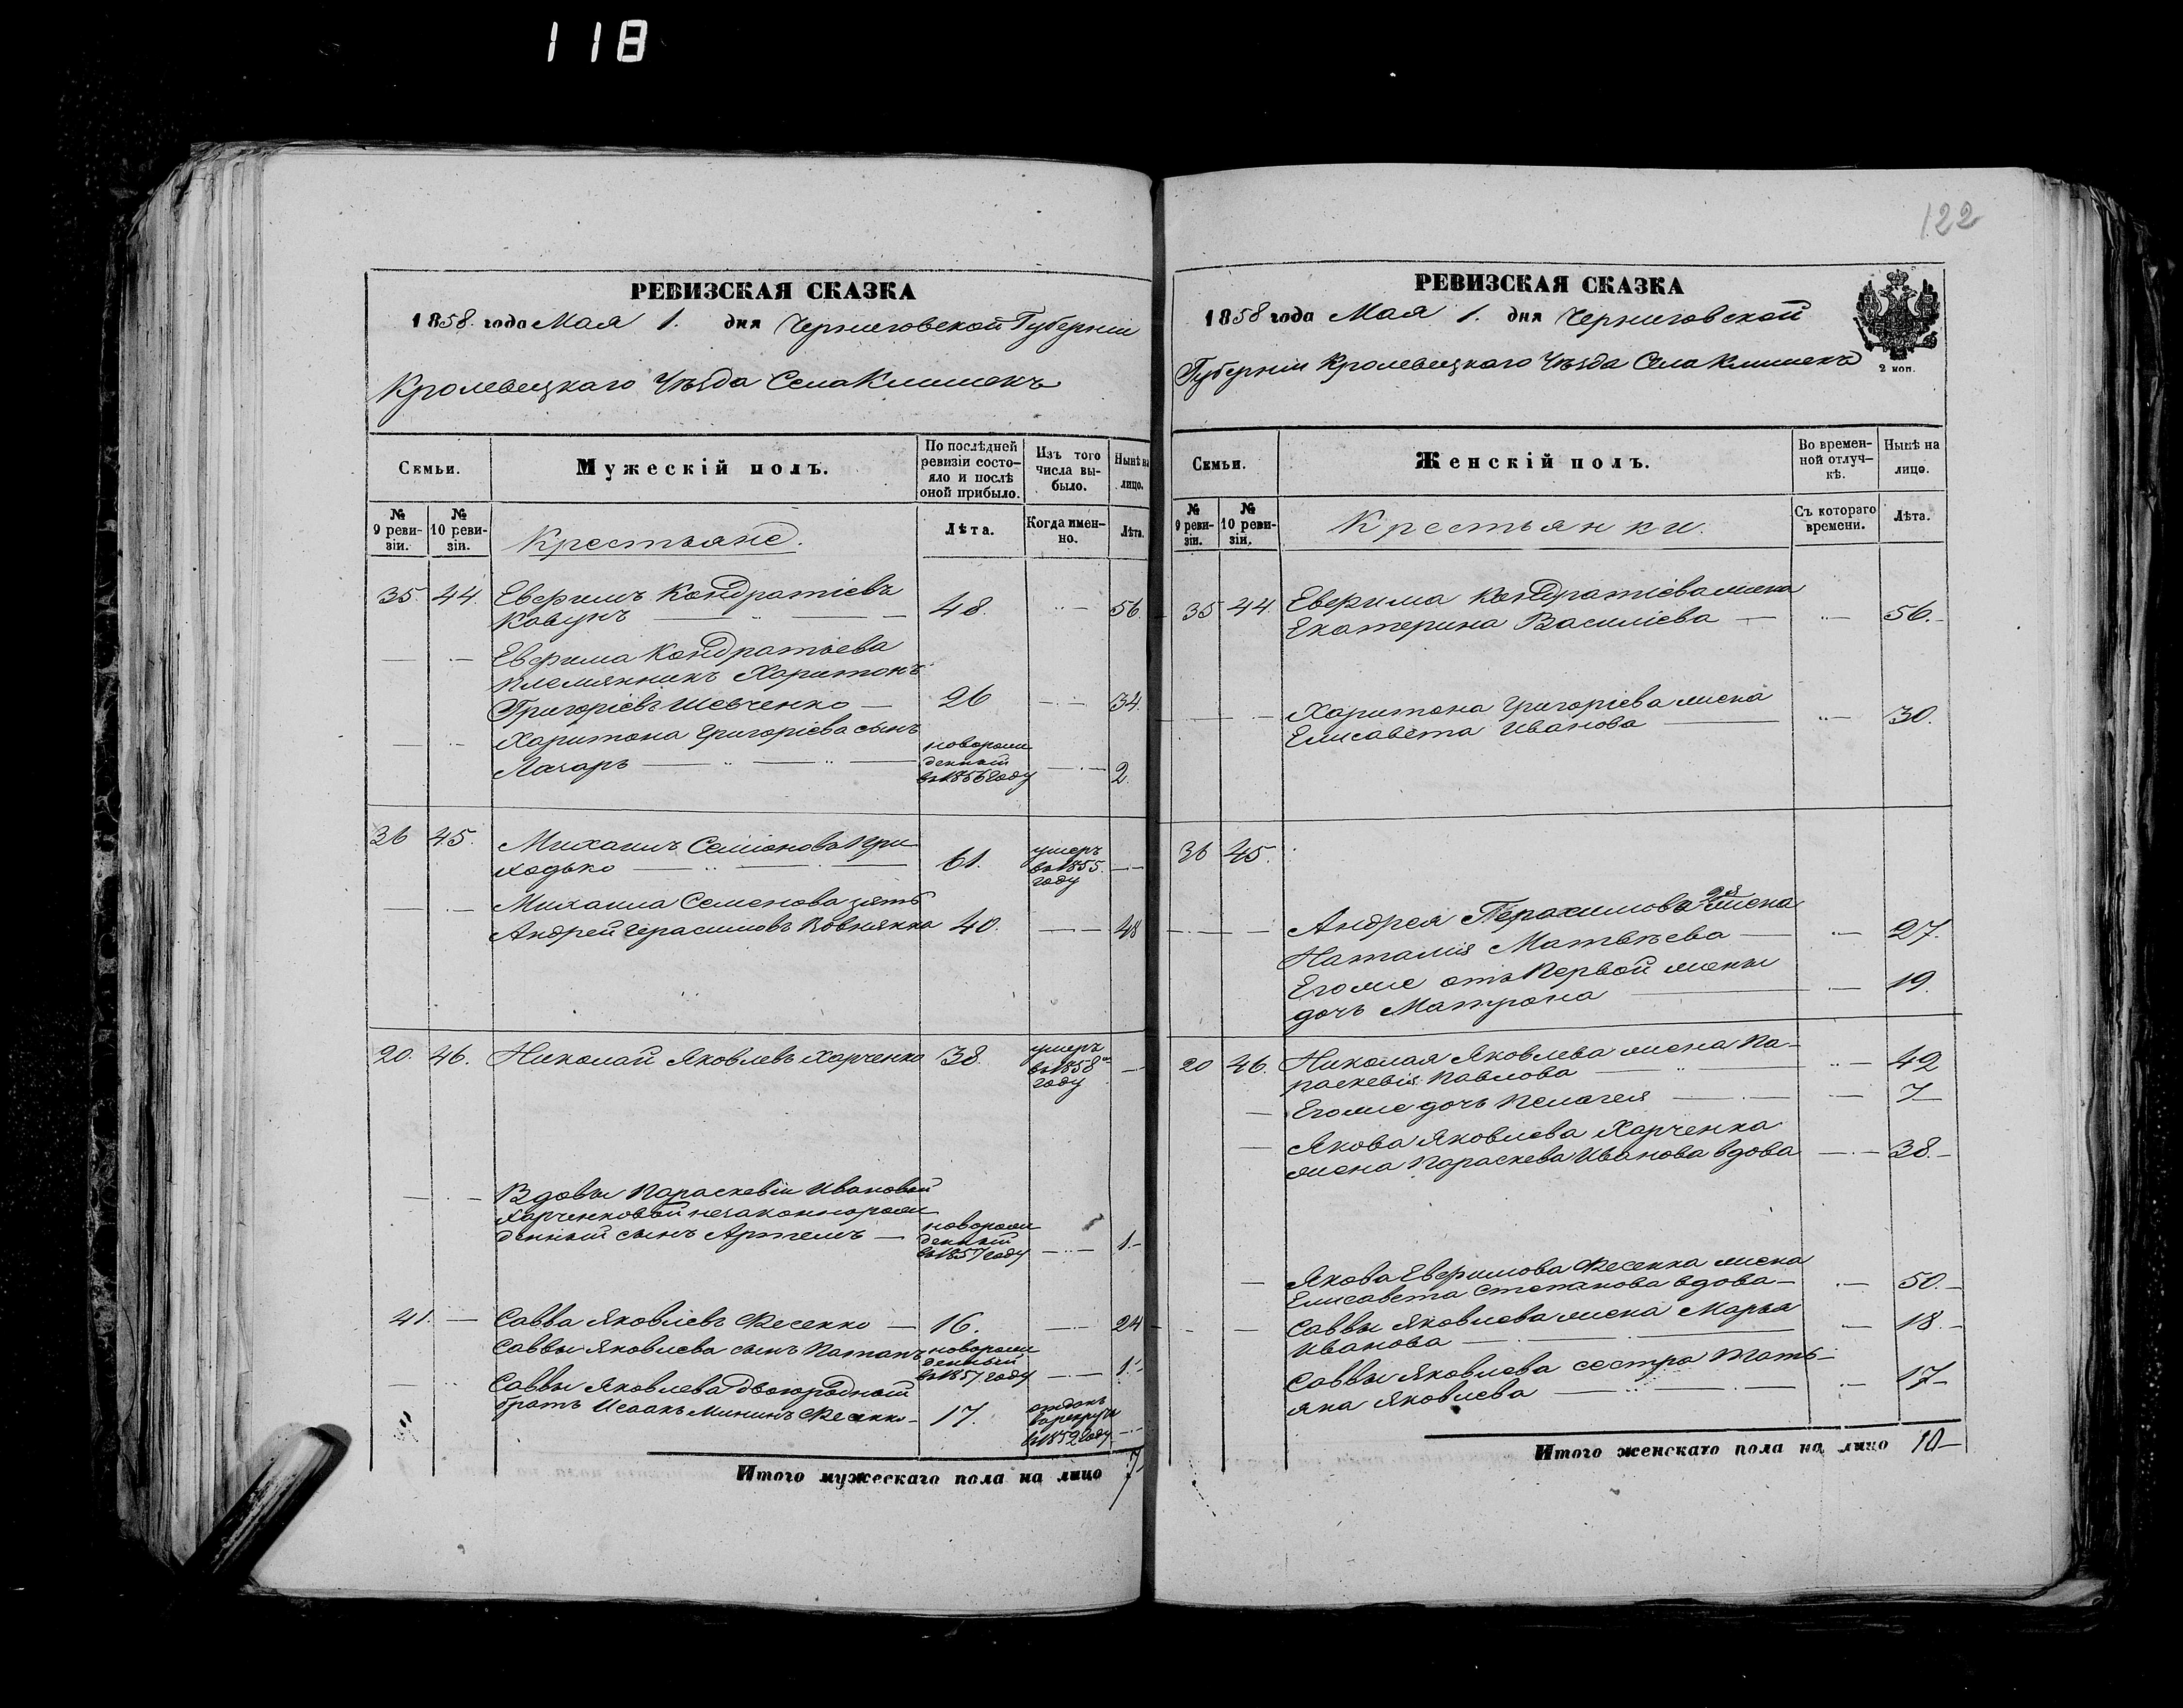 118
РЕВИЗСКАЯ СКАЗКА
1858. года Мая 1. дня Черниговской Губерніи
Кролевецкаго Уѣзда Села Клишекъ
Семьи.
Мужескій полъ.
По послѣдней ревизіи состо-
яло и послѣ оной прибыло.
Изъ того числа вы-
было.
Нынѣ на лицо.
№ 9 реви-
зіи.
№ 10 реви-
зіи.
Крестьяне.
Лѣта.
Когда имен-
но.
Лѣта.
35. 44. Евфимъ Кондратіевъ
Кавунъ 48. 56.
Евфима Кондратьева
племянникъ Харитонъ
Григоріевъ Шевченко 26 34.
Харитона Григоріева сынъ
Лазарь новорож
денный
въ 1856 году 2.
36 45. Михаилъ Семіоновъ При
ходько 61. умеръ
въ 1855.
году
Михаила Семенова зять
Андрей Герасимовъ 40. 48
20. 46. Николай Яковлевъ Харченко 38. умеръ
въ 1858
году
Вдовы Параскевіи Ивановой
Харченковой незаконнорож
денный сынъ Артемъ новорож
денный
въ 1857 году 1.
41. Савва Яковлевъ Фесенко 16. 24
Саввы Яковлева сынъ Потапъ новорож
денный
въ 1857 году 1.
Саввы Яковлева двоюродный
братъ Исаакъ Мининъ Фесенко 17. отданъ
въ рекруты
въ 1852 году
Итого мужескаго пола на лицо 7
122
РЕВИЗСКАЯ СКАЗКА
1858 года Мая 1. дня Черниговской
Губерніи Кролевецкаго Уѣзда Села Клишекъ
2 коп.
Семьи.
Женскій полъ.
Во времен-
ной отлуч-
кѣ.
Нынѣ на лицо.
№ 9 реви-
зіи.
№ 10 реви-
зіи.
Крестьянки.
Съ котораго времени.
Лѣта.
35 44 Евфима Кондратіева жена
Екатерина Василіева 56.
Харитона Григоріева жена
Елисавета Иванова 30.
36 45.
Андрея Герасимова 2я жена
Наталія Матвѣева 27.
Его же отъ первой жены
дочь Матрона 19.
20 46. Николая Яковлева жена Па-
раскевія Павлова 42
Его же дочь Пелагея 7
Якова Яковлева Харченка
жена Параскева Иванова вдова 38.
Якова Евфимова Фесенка жена
Елисавета Степанова вдова 50.
Саввы Яковлева жена Марья
Иванова 18.
Саввы Яковлева сестра Тать-
яна Яковлева 17
Итого женскаго пола на лицо 10